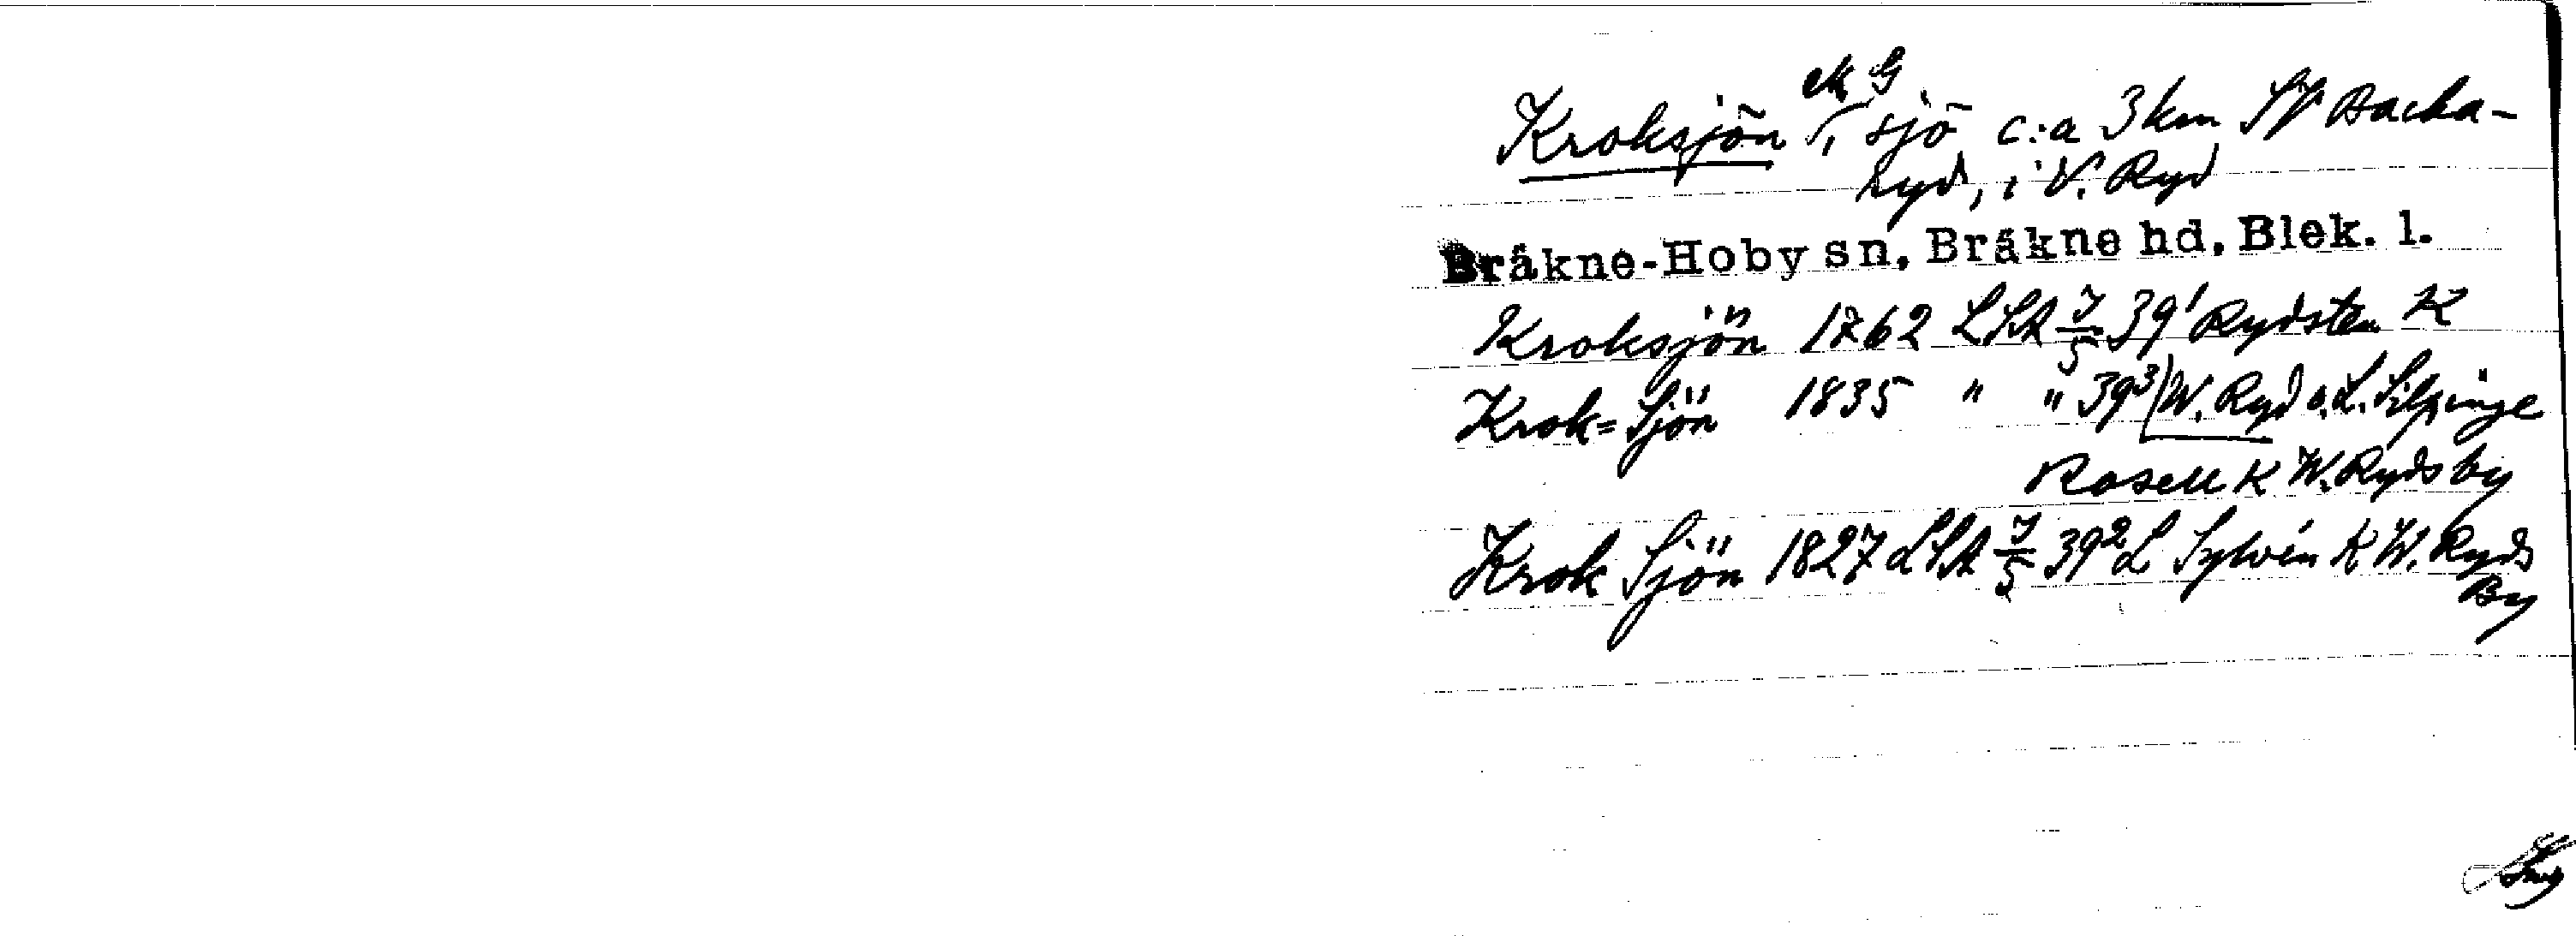 ek G
Kroksjön, sjö c:a 3 km SV Backa-
ryd, i V. Ryd
Bräkne-Hoby sn, Bräkne hd, Blek. l.
Kroksjön 1762 LSA I/5 39¹ Rydsten K
Krok=Sjön 1835 " " 39³ W. Ryd o. L. Silpinge
Rosell K W. Rydsby
Krok Sjön 1827 LSA I/5 39² L Sylvén K W. Ryds
By